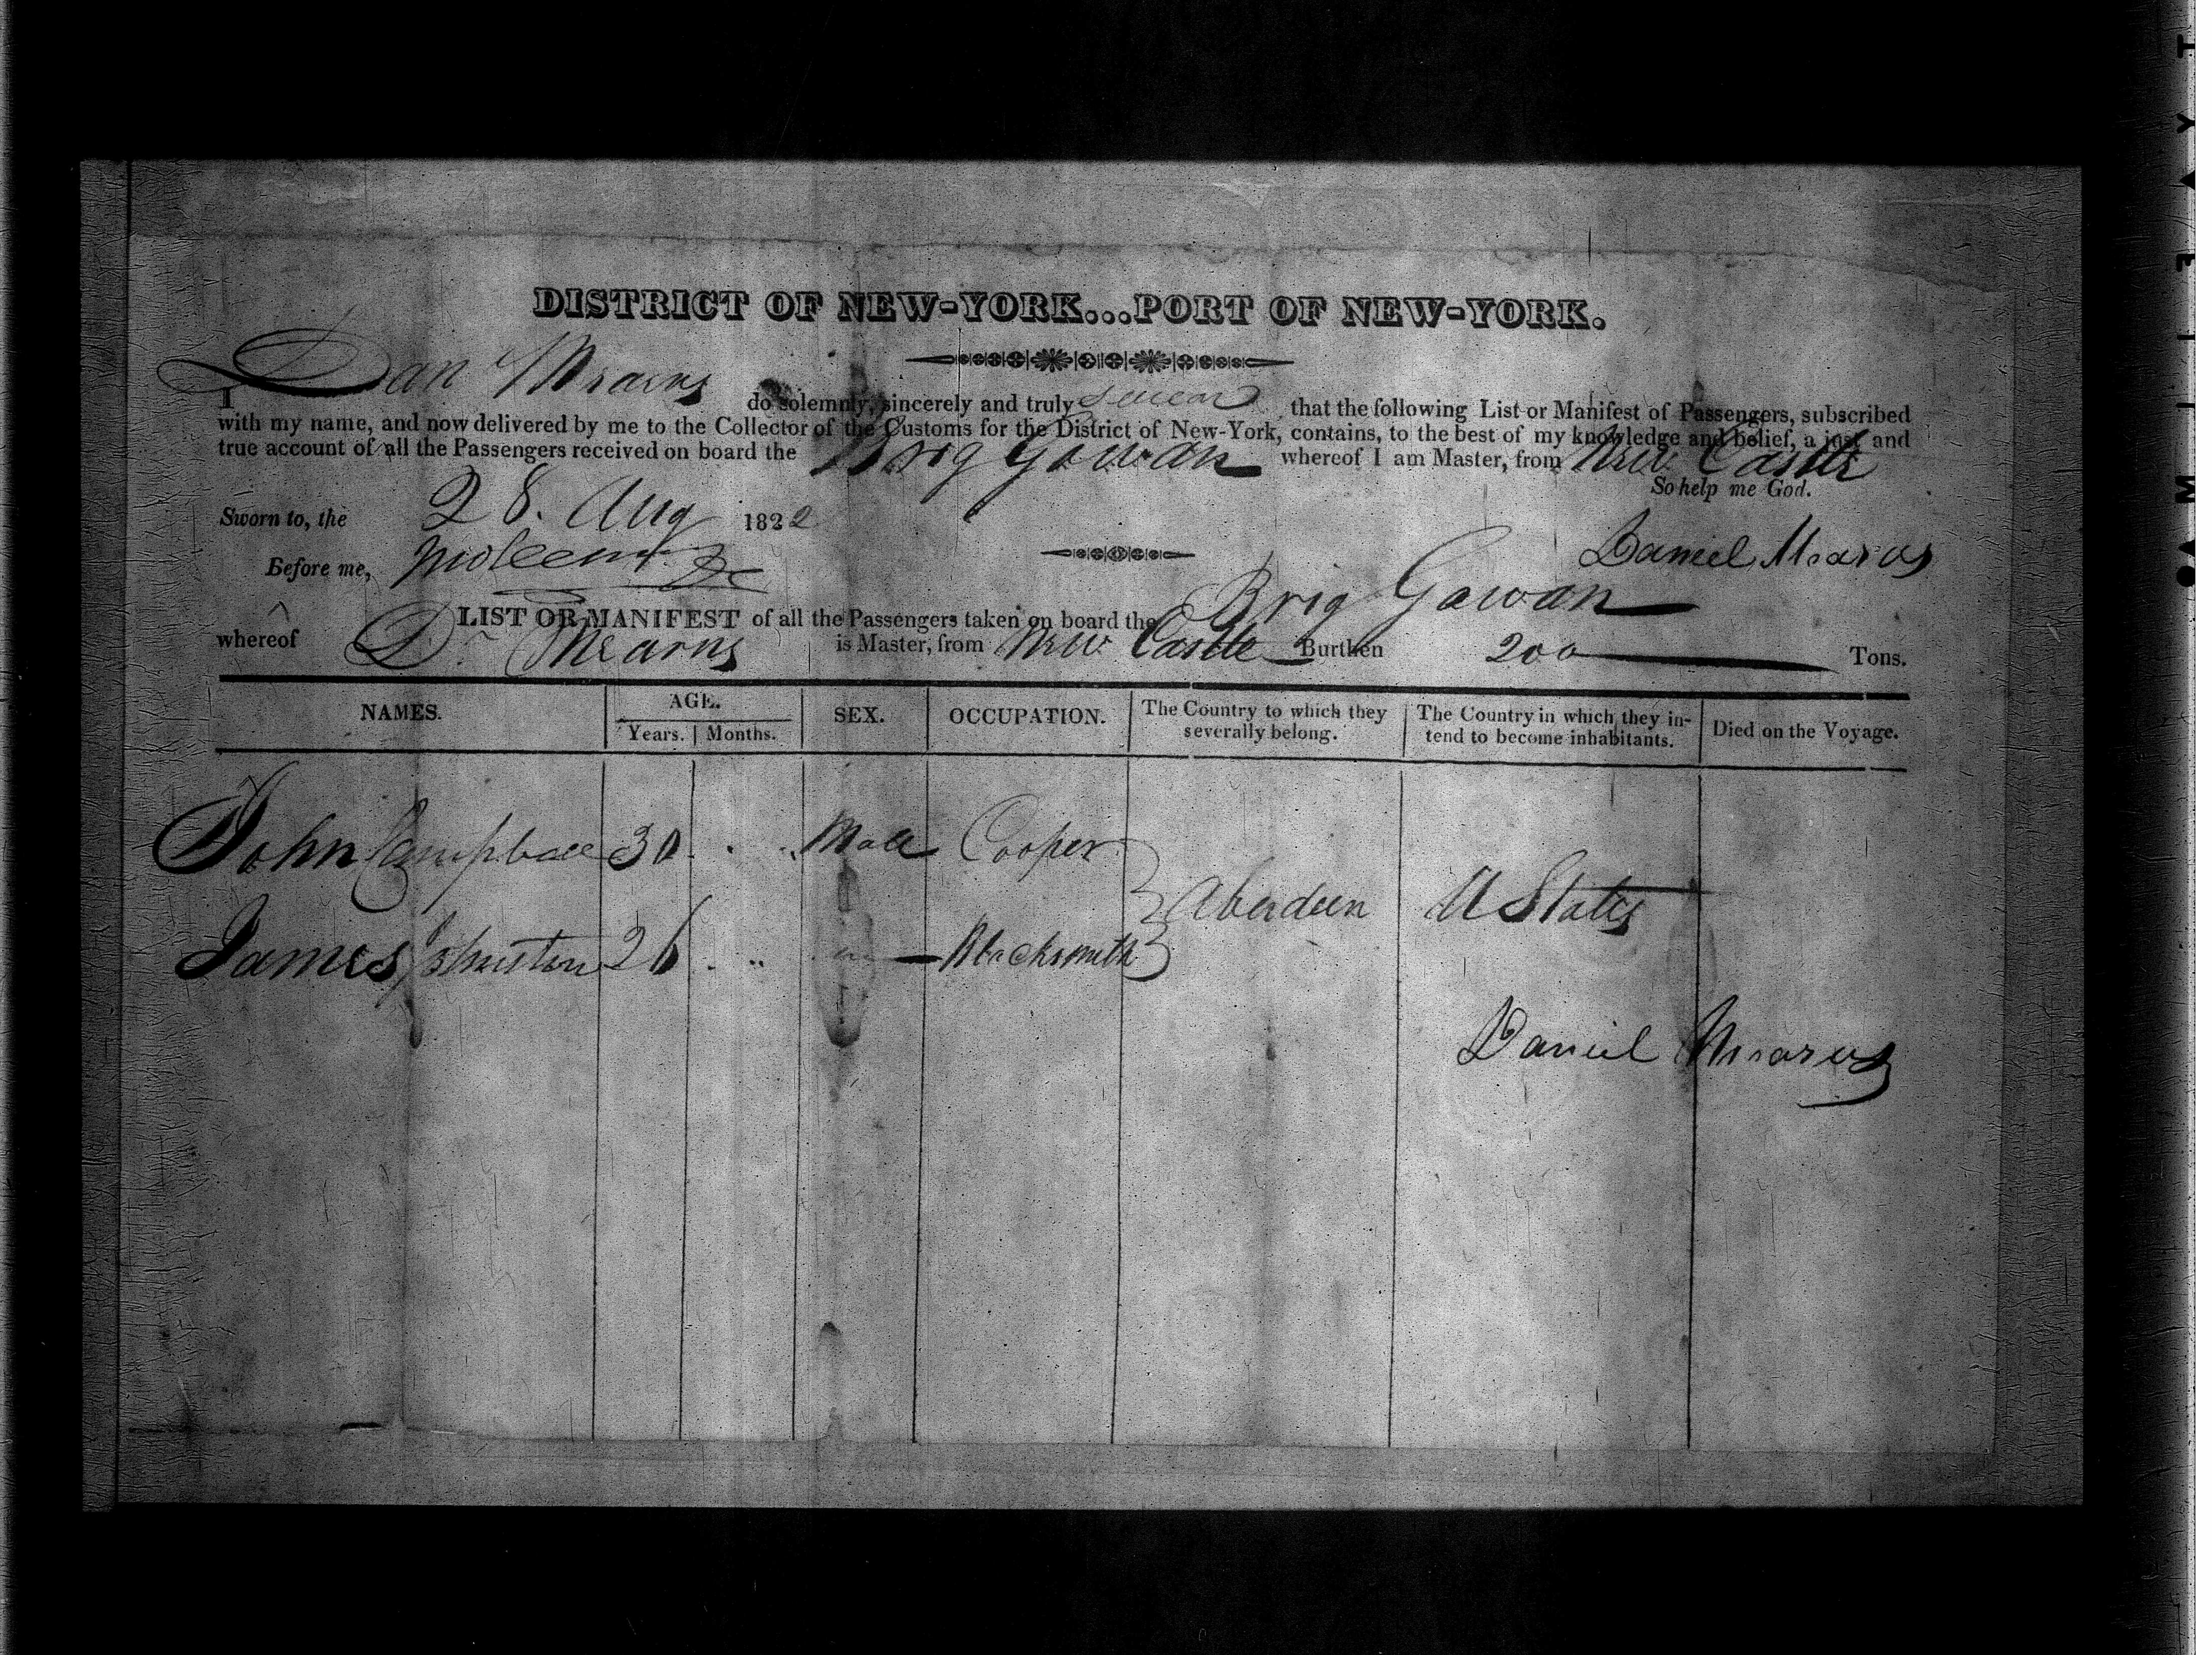 DISTRICT OF NEW-YORK...PORT OF NEW-YORK.
I Dan Mearns do solemnly, sincerely and truly swear that the following List or Manifest of Passengers, subscribed
with my name, and now delivered by me to the Collector of the Customs for the District of New-York, contains, to the best of my knowledge and belief, a just and
true account of all the Passengers received on board the Brig Gowan whereof I am Master, from New Castle
So help me God.
Sworn to, the 28. Aug 1822
Daniel Mearns
Before me,
LIST OR MANIFEST of all the Passengers taken on board the Brig Gowan
whereof D. Mearns is Master, from New Castle Burthen 200 Tons.
NAMES. AGE. Years. Months. SEX. OCCUPATION. The Country to which they severally belong. The Country in which they intend to become inhabitants. Died on the Voyage.
John Campbell 30 Male Cooper
Aberdeen U States
James 26 Blacksmith
Daniel Mearns